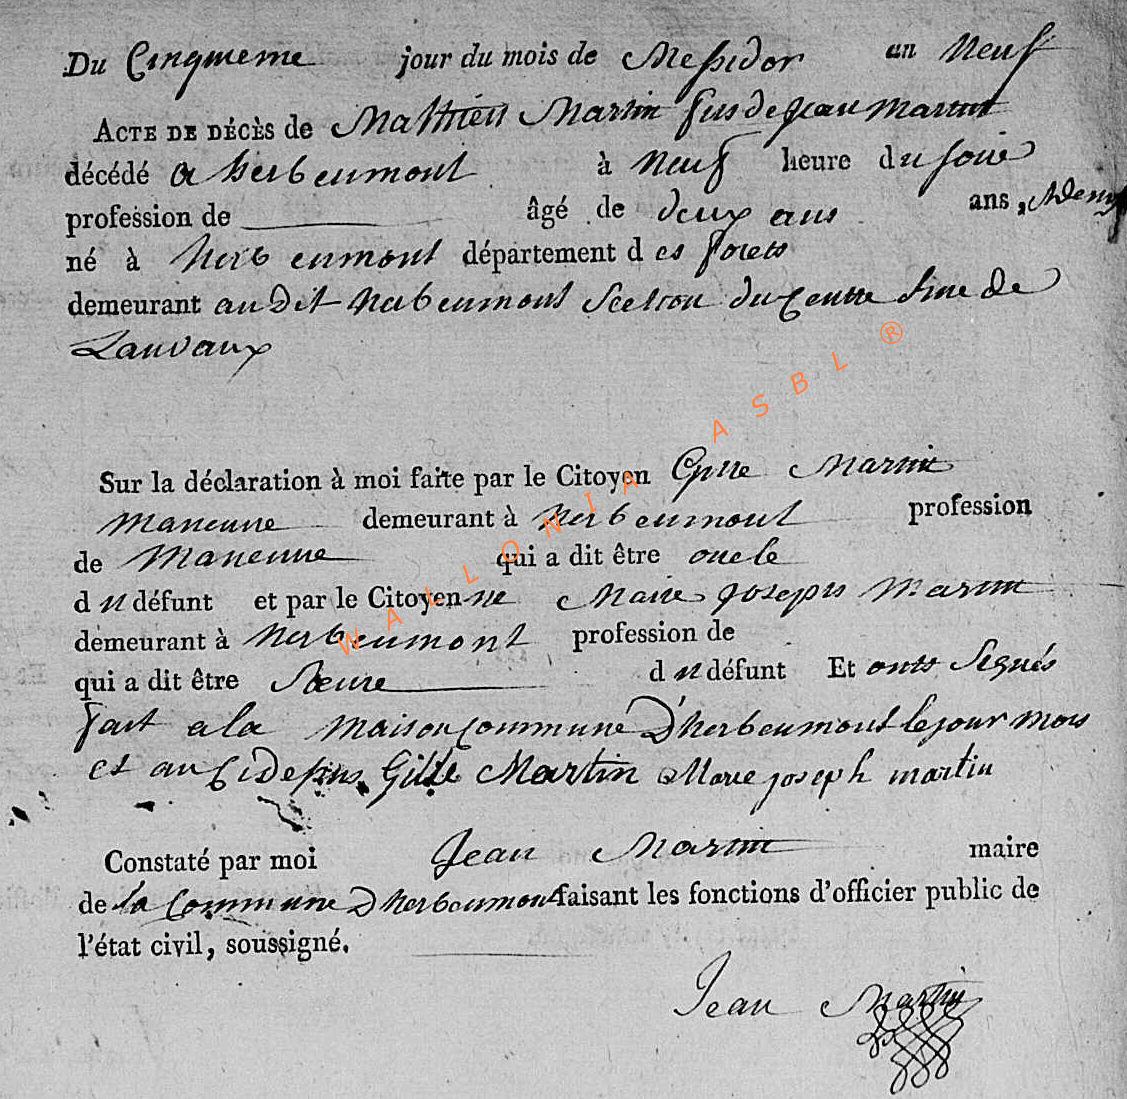 Du Cinqmeme jour du mois de Messidor an Neuf
ACTE DE DÉCÈS de Mathieu Martin fils de Jean Martin
décédé a herbeumont à Neuf heure du soire
profession de âgé de deux ans ans,
né à herbeumont département des forets
demeurant audit herbeumont Section du Centre
Lauvaux
Sur la déclaration à moi faite par le Citoyen Martin
demeurant à herbeumont profession
de qui a dit être oncle
du défunt et par le Citoyenne Marie Joseph Martin
demeurant à herbeumont profession de
qui a dit être Soeure du défunt Et onts Signés
fait a la maison commune D'herbeumont le jour mois
et an Gille Martin Marie joseph martin
Constaté par moi Jean Martin maire
de la Commune D'herbeumont faisant les fonctions d'officier public de
l'état civil, soussigné.
Jean Martin
WALLONIA ASBL ®